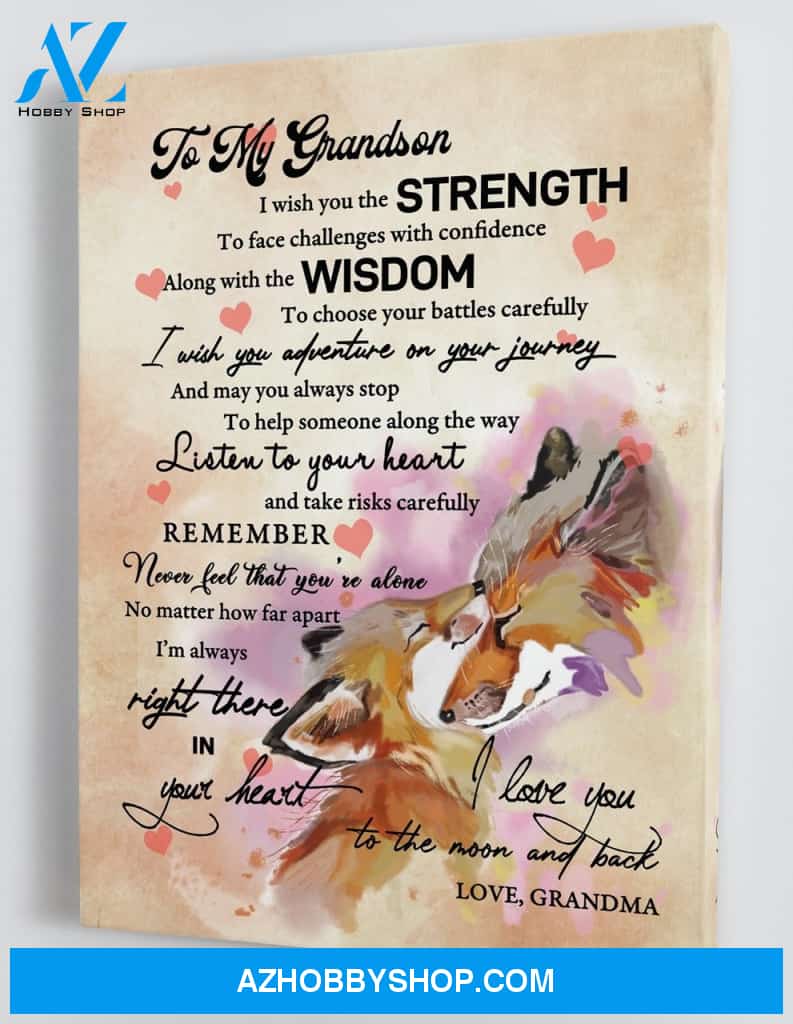 AZ
HOBBY SHOP
To My Grandson
I wish you the STRENGTH
To face challenges with confidence
Along with the WISDOM
To choose your battles carefully
I wish you adventure on your journey
And may you always stop
To help someone along the way
Listen to your heart
and take risks carefully
REMEMBER
Never feel that you're alone
No matter how far apart
I'm always
right there
IN
your heart
I love you
to the moon and back
LOVE, GRANDMA
AZHOBBYSHOP.COM